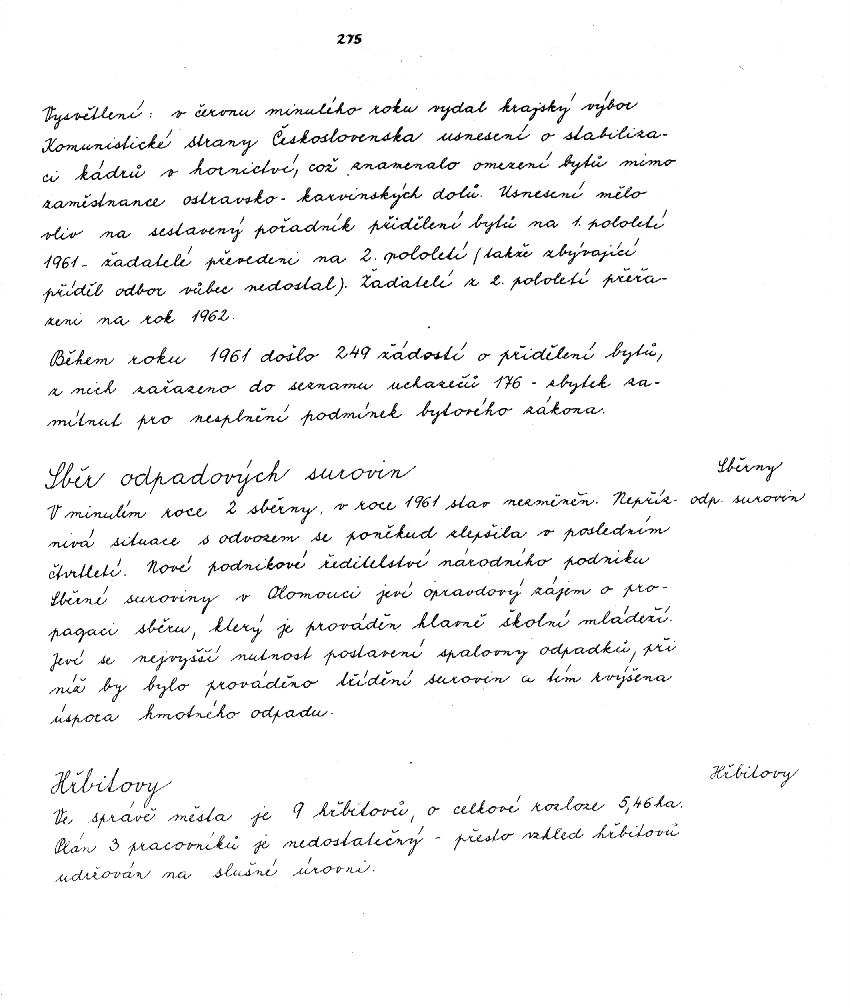 275
Vysvětlení: v červnu minulého roku vydal krajský výbor
Komunistické strany Československa usnesení o stabiliza-
ci kádrů v hornictví, což znamenalo omezení bytů mimo
zaměstnance ostravsko-karvinských dolů. Usnesení mělo
vliv na sestavený pořadník přidělení bytů na 1. pololetí
1961 - žadatelé převedeni na 2. pololetí (takže zbývající
příděl odbor vůbec nedostal). Žadatelé z 2. pololetí přeřa-
zeni na rok 1962.
Během roku 1961 došlo 249 žádostí o přidělení bytů,
z nich zařazeno do seznamu uchazečů 176 - zbytek za-
mítnut pro nesplnění podmínek bytového zákona.
Sběr odpadových surovin
Sběrny
V minulém roce 2 sběrny, v roce 1961 stav nezměněn. Nepříz-
odp. surovin
nivá situace s odvozem se poněkud zlepšila v posledním
čtvrtletí. Nové podnikové ředitelství národního podniku
Sběrné suroviny v Olomouci jeví opravdový zájem o pro-
pagaci sběru, který je prováděn hlavně školní mládeží.
Jeví se nejvyšší nutnost postavení spalovny odpadků, při
níž by bylo prováděno třídění surovin a tím zvýšena
úspora hmotného odpadu.
Hřbitovy
Hřbitovy
Ve správě města je 9 hřbitovů, o celkové rozloze 5,46 ha.
Plán 3 pracovníků je nedostatečný - přesto vzhled hřbitovů
udržován na slušné úrovni.